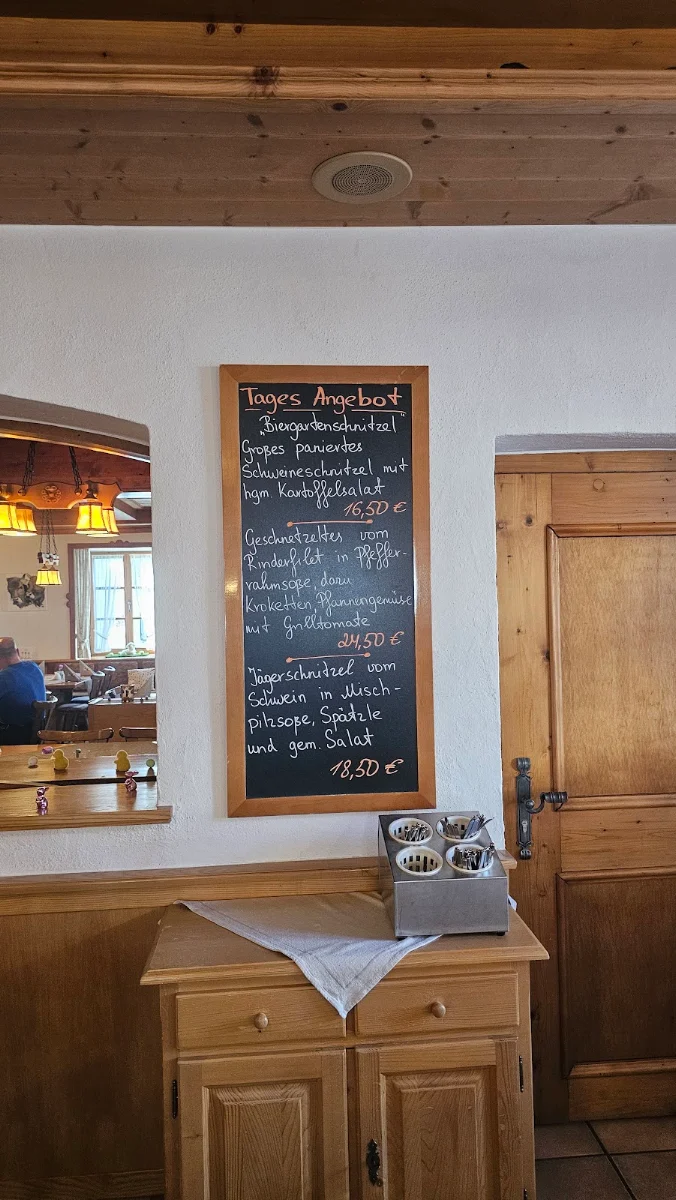 Tages Angebot
„Biergartenschnitzel"
Großes paniertes
Schweineschnitzel mit
hgm. Kartoffelsalat
16,50 €
Geschnetzeltes vom
Rinderfilet in Pfeffer-
rahmsoße, dazu
Kroketten, Pfannengemüse
mit Grilltomate
24,50 €
Jägerschnitzel vom
Schwein in Misch-
pilzsoße, Spätzle
und gem. Salat
18,50 €